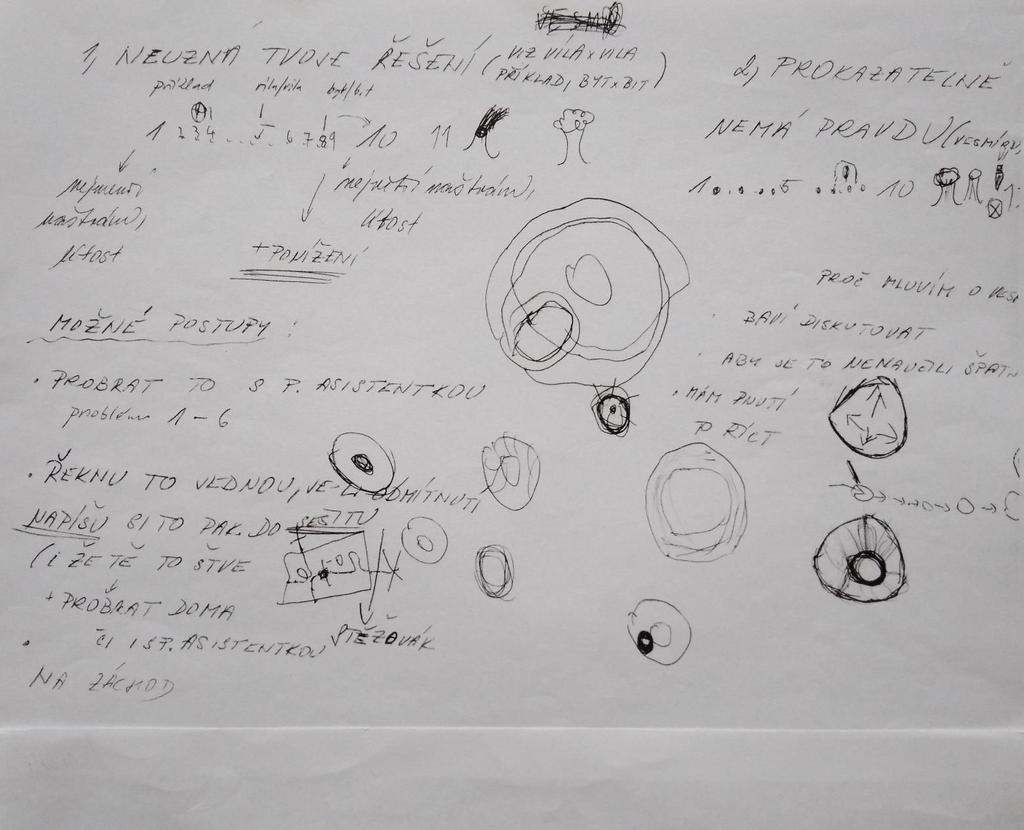 1, NEUZNÁ TVOJE ŘEŠENÍ (VIZ VÍLA x VILA
PŘÍKLAD, BYT x BIT)
příklad víla/vila byt/bit
1 2 3 4 . . . 5 . 6 7 8 9 10 11
nejmenší
naštvání,
lítost
největší naštvání,
lítost
+ PONÍŽENÍ
MOŽNÉ POSTUPY :
• PROBRAT TO S P. ASISTENTKOU
problém 1 - 6
• ŘEKNU TO JEDNOU, JE-LI ODMÍTNUTÍ
NAPÍŠU SI TO PAK DO SEŠITU
(I ŽE TĚ TO ŠTVE
+ PROBRAT DOMA
ČI I S P. ASISTENTKOU STĚŽOVÁK
• NA ZÁCHOD
2, PROKAZATELNĚ
NEMÁ PRAVDU (VESMÍR
1 . . . . 5 . . . . . 10
PROČ MLUVÍM O VESM
• BAVÍ DISKUTOVAT
• ABY SE TO NENAUČILI ŠPATN
• MÁM PNUTÍ
TO ŘÍCT